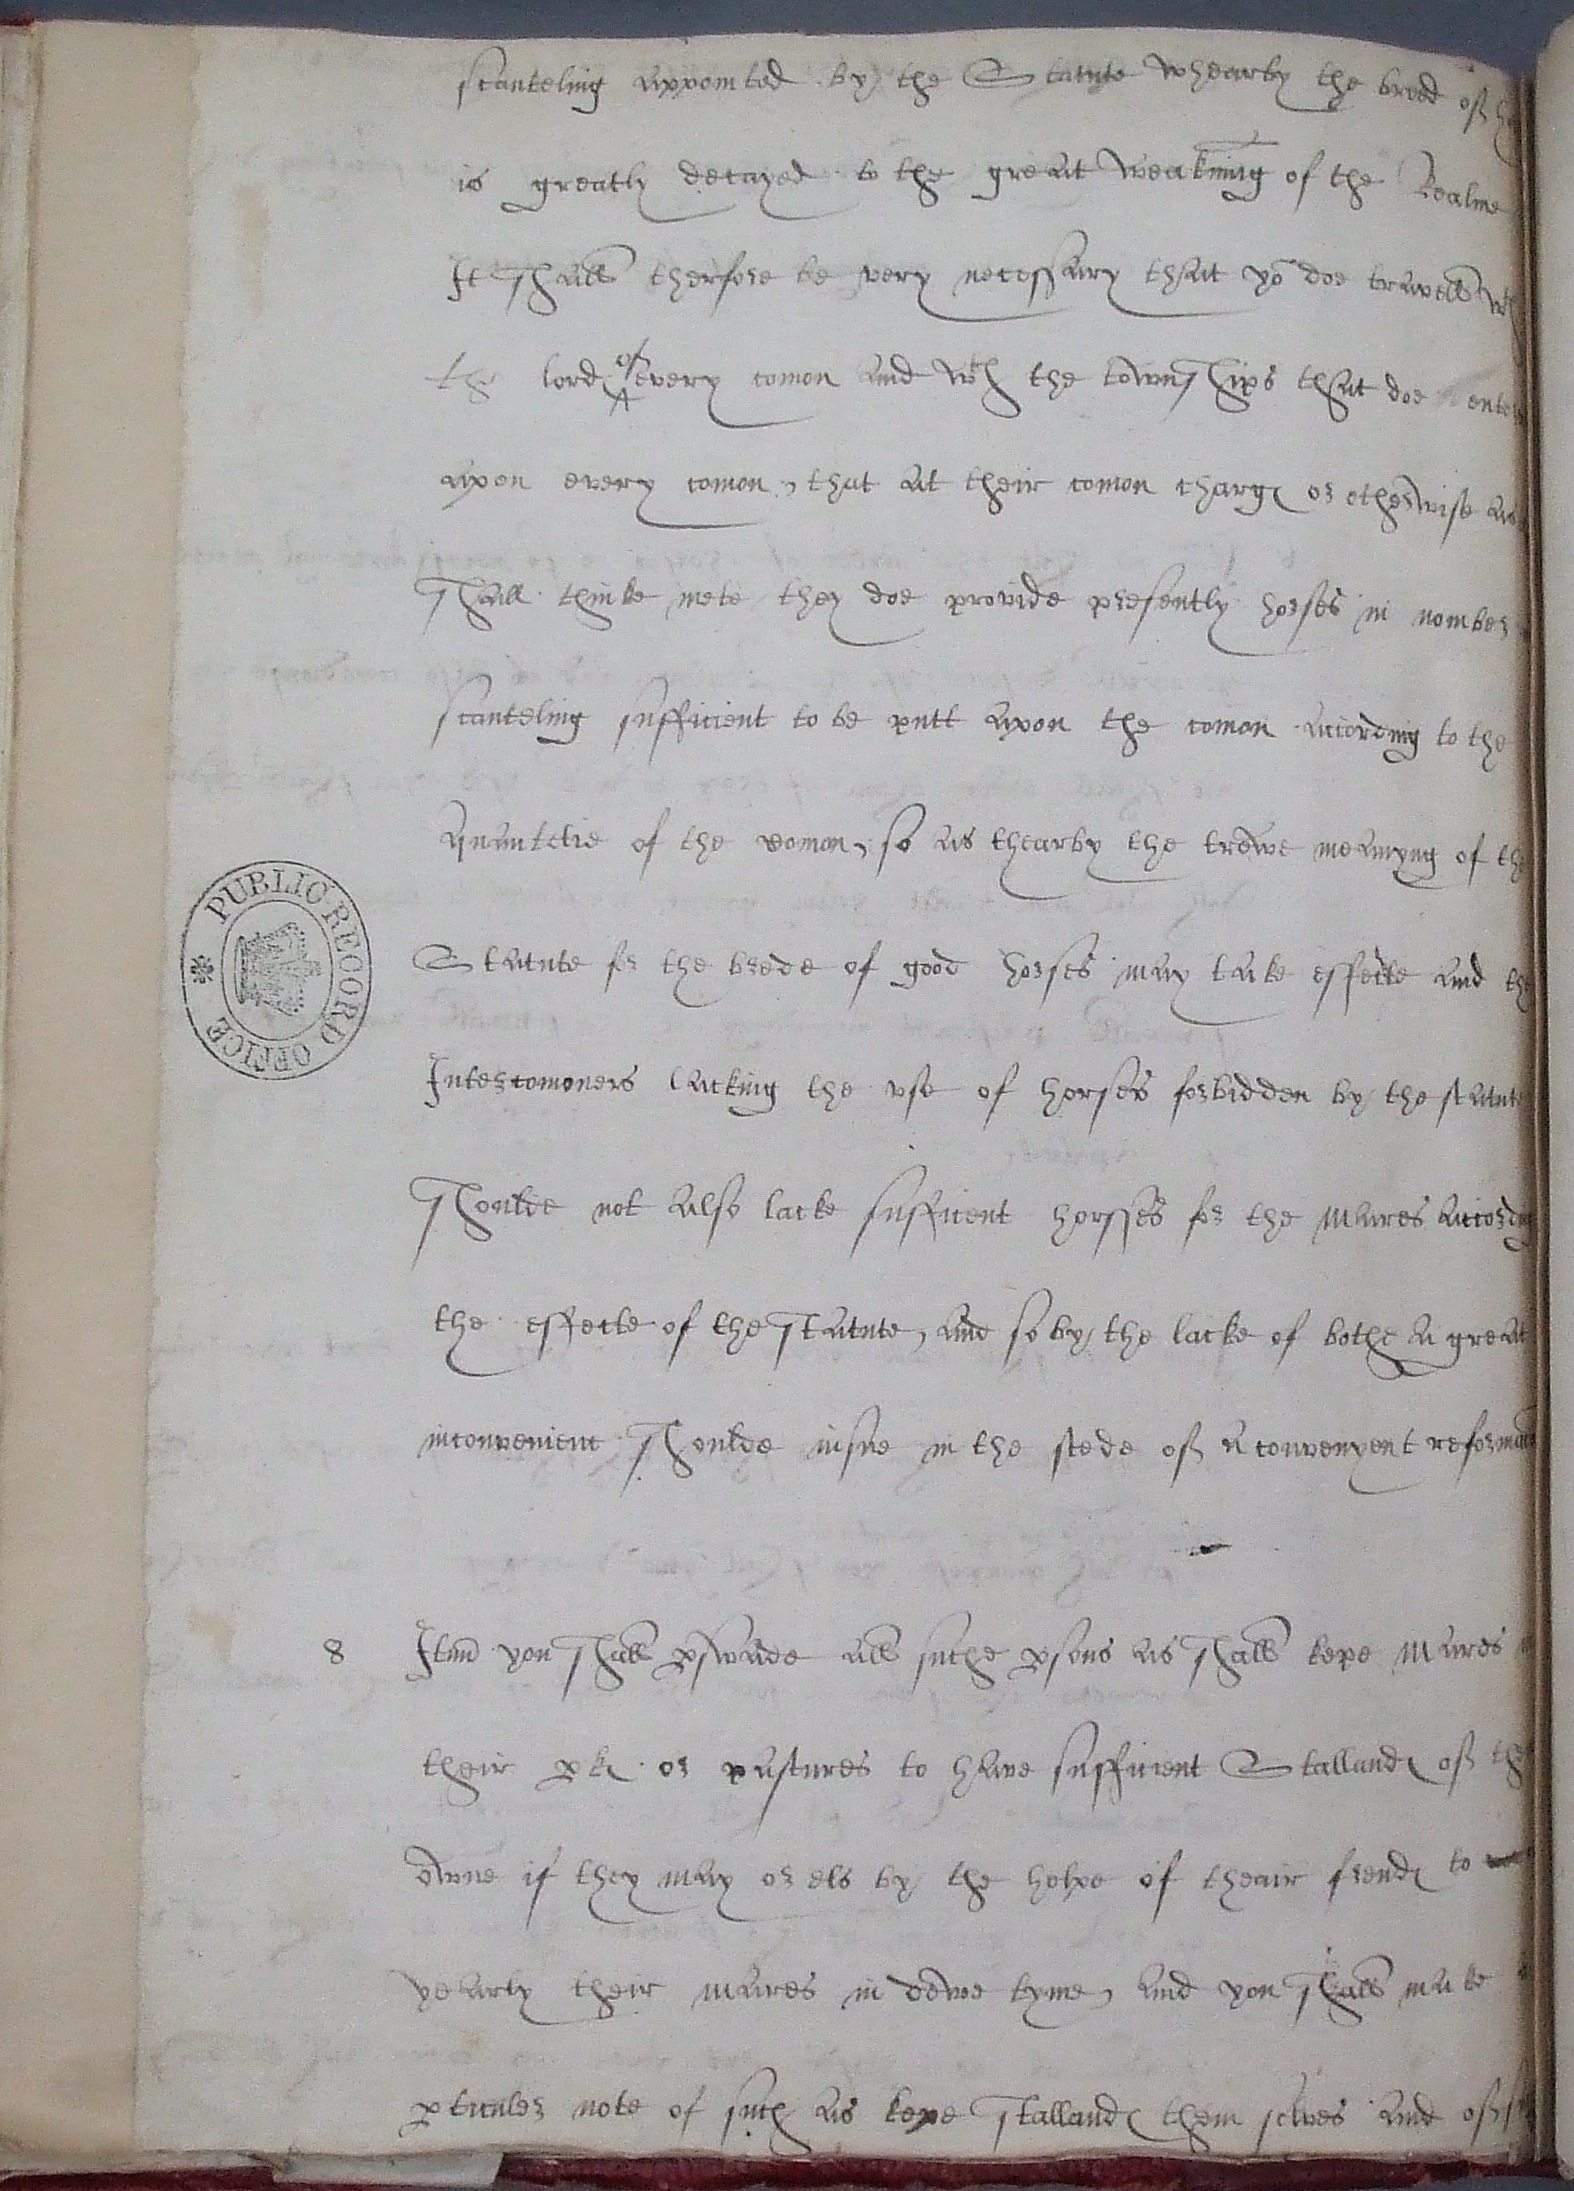 scanteling appointed by the Statute whearby the breed of
is greatly decayed to the great weakning of the Realme
It shall therfore be very necessary that yo doe travell wt
the lord of every comon and wth the townships that doe
upon every comon, that at their comon charge or otherwise as
shall thinke mete they doe provide presently horses in nomber
scanteling sufficient to be putt upon the comon according to the
quantetie of the comon, so as thearby the trewe meanyng of the
Statute for the brede of good horses may take effecte and the
Intercomoners lacking the use of horses forbidden by the statute
shoulde not also lacke sufficent horsses for the mares
the effecte of the statute, and so by the lacke of bothe a great
inconvenient shoulde insue in the stede of a convenyent
8 Itm you shall pswade all suche psons as shall kepe mares
PUBLIC RECORD OFFICE
their pkes or pastures to have sufficient Stallandes of
owne if they may or els by the helpe of theair frendes to
yearly their mares in dewe tyme, and you shall make
pticuler note of such as kepe stallandes them selves and of